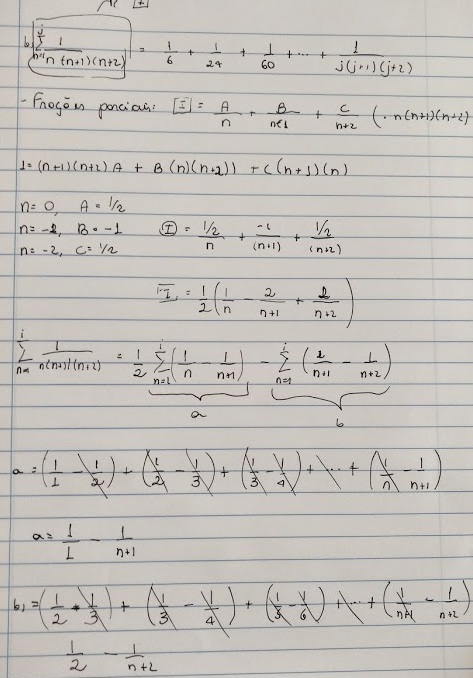 b) j ∑ n=1 1/n(n+1)(n+2) = 1/6 + 1/24 + 1/60 + ... + 1/j(j+1)(j+2)
- Frações parciais: [I] = A/n + B/n+1 + C/n+2 (· n(n+1)(n+2)
1 = (n+1)(n+2) A + B (n)(n+2)) + C(n+1)(n)
n = 0, A = 1/2
n = -1, B = -1 (I) = 1/2/n + -1/(n+1) + 1/2/(n+2)
n = -2, C = 1/2
I = 1/2 (1/n - 2/n+1 + 1/n+2)
i ∑ n=1 1/n(n+1)(n+2) = 1/2 i ∑ n=1 (1/n - 1/n+1) - i ∑ n=1 (1/n+1 - 1/n+2)
a b
a = (1/1 - 1/2) + (1/2 - 1/3) + (1/3 - 1/4) + ... + (1/n - 1/n+1)
a = 1/1 - 1/n+1
b, = (1/2 * 1/3) + (1/3 - 1/4) + (1/5 - 1/6) + ... + (1/n+1 - 1/n+2)
1/2 - 1/n+2